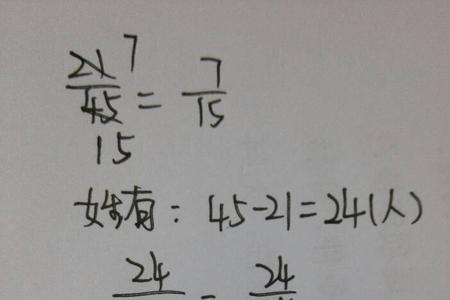 21 7 7
45 = 15
15
女生有：45-21=24(人)
24 = 24